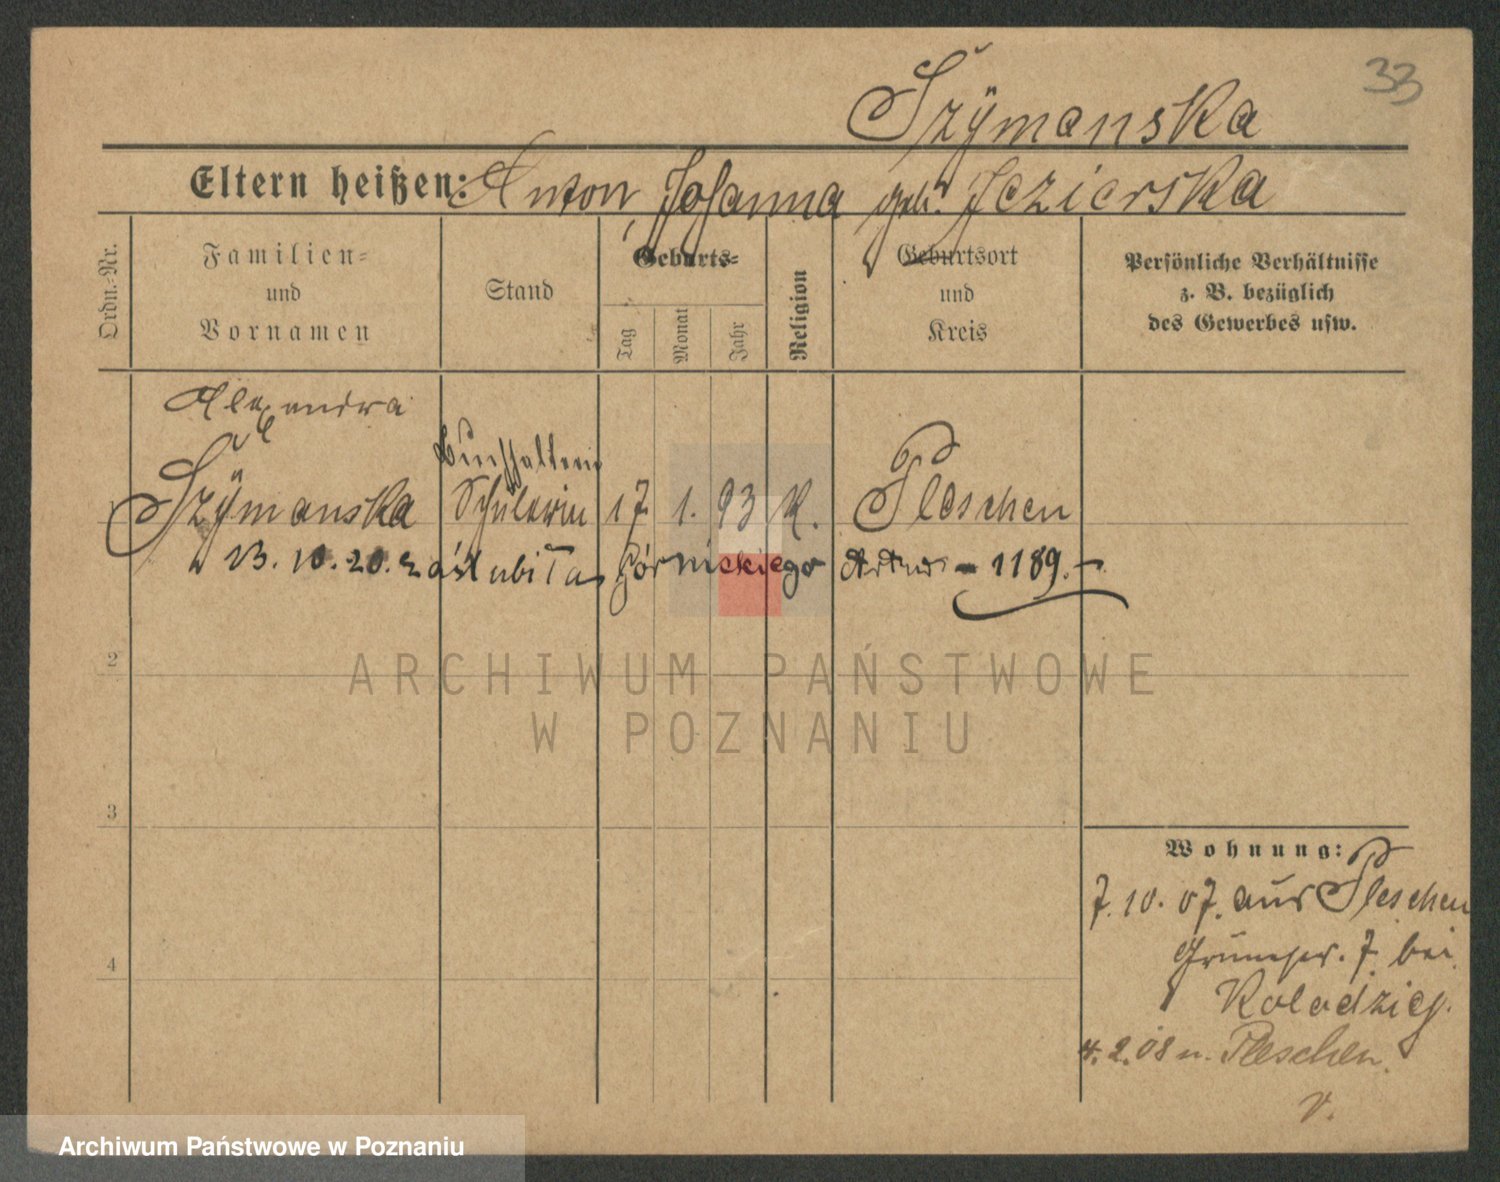 33
Szÿmanska
Eltern heißen: Anton, Johanna geb. Jezierska
Ordn.-Nr.
Familien-
und
Vornamen
Stand
Geburts-
Tag
Monat
Jahr
Religion
Geburtsort
und
Kreis
Persönliche Verhältnisse
z. B. bezüglich
des Gewerbes usw.
Alexandra
Buchhalterin
Szÿmanska Schülerin 17. 1. 93 K. Pleschen
13. 10. 20. zaślubiła Górnickiego Artur - 1189.-
2
ARCHIWUM PAŃSTWOWE
W POZNANIU
3
Wohnung:
7. 10. 07. aus Pleschen
7 bei
4
4. 2. 08 n. Pleschen.
v.
Archiwum Państwowe w Poznaniu